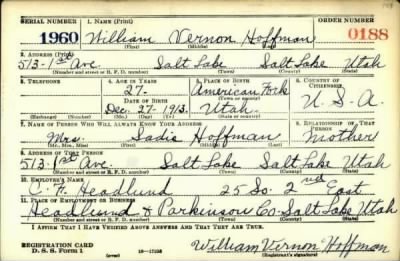 SERIAL NUMBER 1. NAME (Print) ORDER NUMBER
1960 William Vernon Hoffman 0188
(First) (Middle) (Last)
2. ADDRESS (Print)
513-1st Ave. Salt Lake Salt Lake Utah
(Number and street or R. F. D. number) (Town) (County) (State)
3. TELEPHONE 4. AGE IN YEARS 5. PLACE OF BIRTH 6. COUNTRY OF CITIZENSHIP
27. American Fork
DATE OF BIRTH (Town or county)
Dec. 27 1913. Utah. U. S. A.
(Exchange) (Number) (Mo.) (Day) (Yr.) (State or country)
7. NAME OF PERSON WHO WILL ALWAYS KNOW YOUR ADDRESS 8. RELATIONSHIP OF THAT PERSON
Mrs. Sadie Hoffman Mother
(Mr., Mrs., Miss) (First) (Middle) (Last)
9. ADDRESS OF THAT PERSON
513-1st Ave. Salt Lake Salt Lake Utah
(Number and street or R. F. D. number) (Town) (County) (State)
10. EMPLOYER'S NAME
C. F. Headlund 25 So. 2nd East
11. PLACE OF EMPLOYMENT OR BUSINESS
Headlund & Parkinson Co. Salt Lake Utah
(Number and street or R. F. D. number) (Town) (County) (State)
I AFFIRM THAT I HAVE VERIFIED ABOVE ANSWERS AND THAT THEY ARE TRUE.
REGISTRATION CARD
D. S. S. Form 1 William Vernon Hoffman
(over) (Registrant's signature)